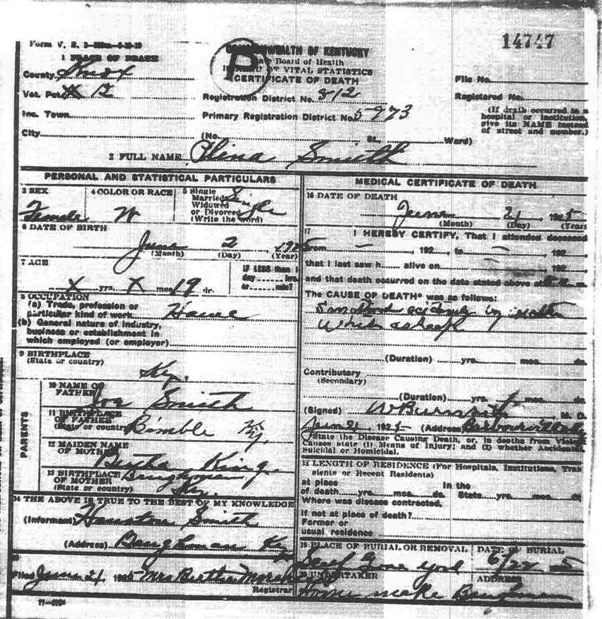 Form V. S.
14747
COMMONWEALTH OF KENTUCKY
State Board of Health
BUREAU OF VITAL STATISTICS
CERTIFICATE OF DEATH
B
1 PLACE OF DEATH
County Knox
File No.
Vot. Pct.
Registration District No. 812
Registered No.
Inc. Town
Primary Registration District No. 5973
(If death occurred in a
hospital or institution,
give its NAME instead
of street and number.)
City
(No. St. Ward)
2 FULL NAME Smith
PERSONAL AND STATISTICAL PARTICULARS
3 SEX
Female
4 COLOR OR RACE
W
5 Single
Married
Widowed
or Divorced
(Write the word)
Single
6 DATE OF BIRTH
June 2 1925
(Month) (Day) (Year)
7 AGE
x yrs. x mos. 19 ds.
IF LESS than 1
day hrs.
or min.?
8 OCCUPATION
(a) Trade, profession or
particular kind of work
(b) General nature of industry,
business or establishment in
which employed (or employer)
9 BIRTHPLACE
(State or country)
Ky.
PARENTS
10 NAME OF
FATHER
Joe Smith
11 BIRTHPLACE
OF FATHER
(State or country)
Bimble Ky
12 MAIDEN NAME
OF MOTHER
King
13 BIRTHPLACE
OF MOTHER
(State or country)
Baughman
Ky.
14 THE ABOVE IS TRUE TO THE BEST OF MY KNOWLEDGE
(Informant) Houston Smith
(Address) Baughman Ky
15
Filed June 21 1925 Mrs
Registrar
11-6184
MEDICAL CERTIFICATE OF DEATH
16 DATE OF DEATH
June 21 1925
(Month) (Day) (Year)
17
I HEREBY CERTIFY, That I attended deceased
from 192 to 192
that I last saw h alive on 192
and that death occurred on the date stated above at
The CAUSE OF DEATH* was as follows:
by mother
while asleep
(Duration) yrs. mos. ds.
Contributory
(Secondary)
(Duration) yrs. mos. ds.
(Signed) M. D.
June 21 1925 (Address)
*State the Disease Causing Death, or, in deaths from Violent
Causes state (1) Means of Injury; and (2) whether Accidental,
Suicidal or Homicidal.
18 LENGTH OF RESIDENCE (For Hospitals, Institutions, Transients
or Recent Residents)
At place
of death yrs. mos. ds.
In the
State yrs. mos. ds.
Where was disease contracted,
if not at place of death?
Former or
usual residence
19 PLACE OF BURIAL OR REMOVAL
DATE OF BURIAL
Grave Yard
6/22 25
20 UNDERTAKER
ADDRESS
Home make Baughman